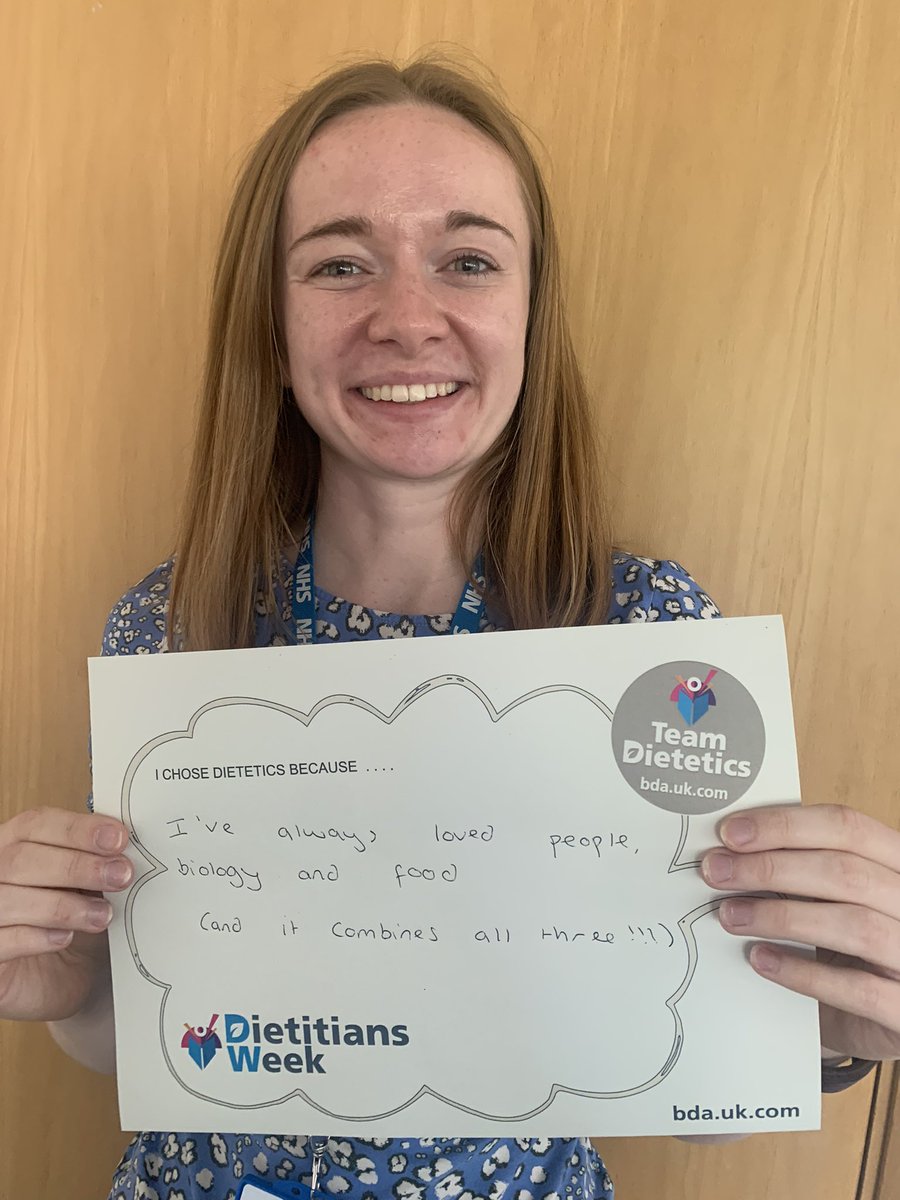 NHS NHS
NHS
Team
Dietetics
bda.uk.com
I CHOSE DIETETICS BECAUSE ....
I've always loved people,
biology and food
(and it combines all three!!!)
Dietitians
Week
bda.uk.com